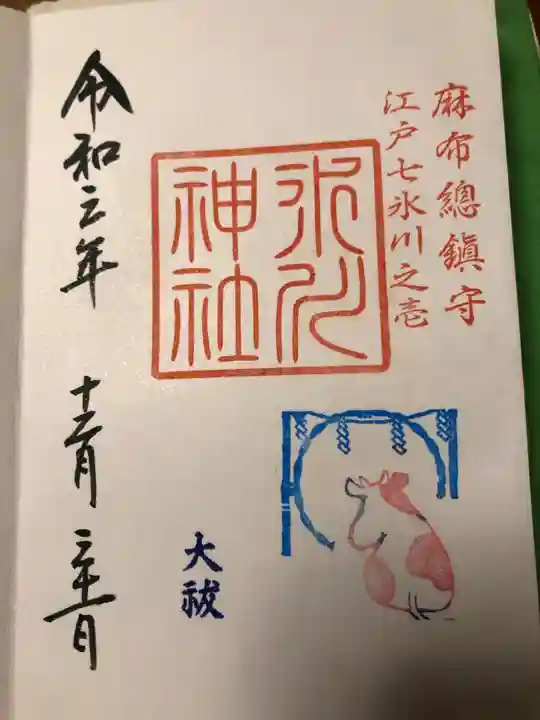 麻布總鎮守
江戸七氷川之壱
氷川
神社
大祓
令和三年 十二月 三十一日